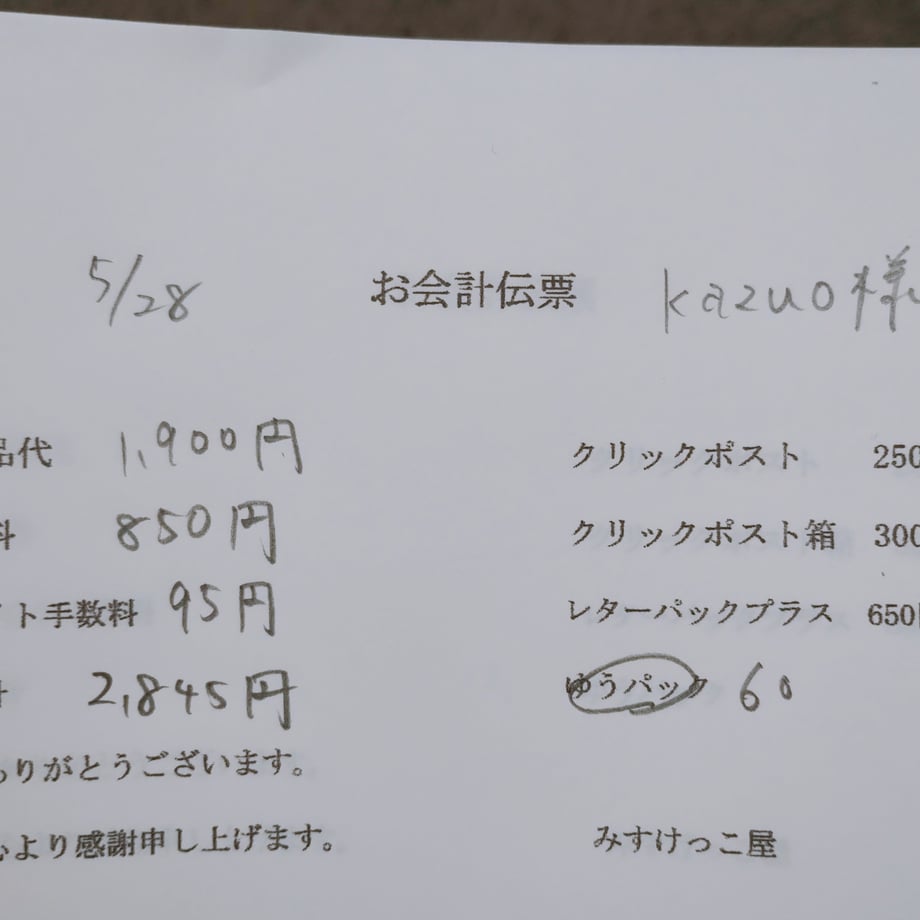 5/28 お会計伝票 kazuo様
品代 1,900円 クリックポスト 250
料 850円 クリックポスト箱 300
イト手数料 95円 レターパックプラス 650円
計 2,845円 ゆうパック 60
ありがとうございます。
心より感謝申し上げます。 みすけっこ屋